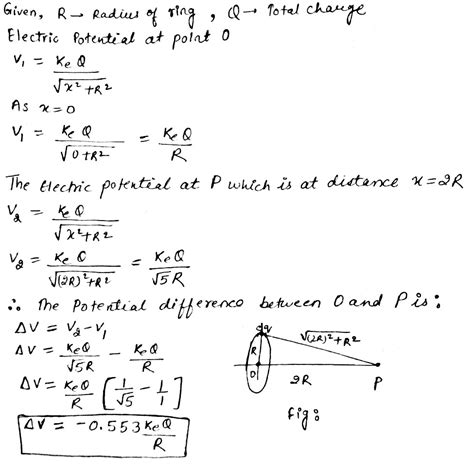 Given, R → Radius of ring, Q → Total charge
Electric Potential at point O
V₁ = KeQ / √(x²+R²)
As x=0
V₁ = KeQ / √(0+R²) = KeQ / R
The Electric potential at P which is at distance x=2R
V₂ = KeQ / √(x²+R²)
V₂ = KeQ / √((2R)²+R²) = KeQ / √5R
∴ The Potential difference between O and P is:
ΔV = V₂-V₁
ΔV = KeQ / √5R - KeQ / R
ΔV = KeQ / R [1/√5 - 1/1]
ΔV = -0.553 KeQ / R
dq
√(2R)²+R²
R
O
2R
P
fig: